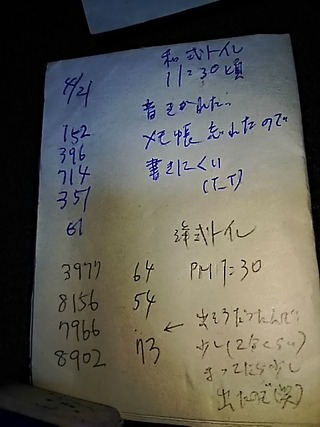 4/21
和式トイレ
11:30頃
音をかれた。
メモ帳 忘れたので
書きにくい
(T_T)
152
396
714
351
61
洋式トイレ
PM 1:30
3977 64
8156 54
7966
8902 73
← 出そうだったんで
少し(2なくらい)
まってたら少し
出たのだ(笑)